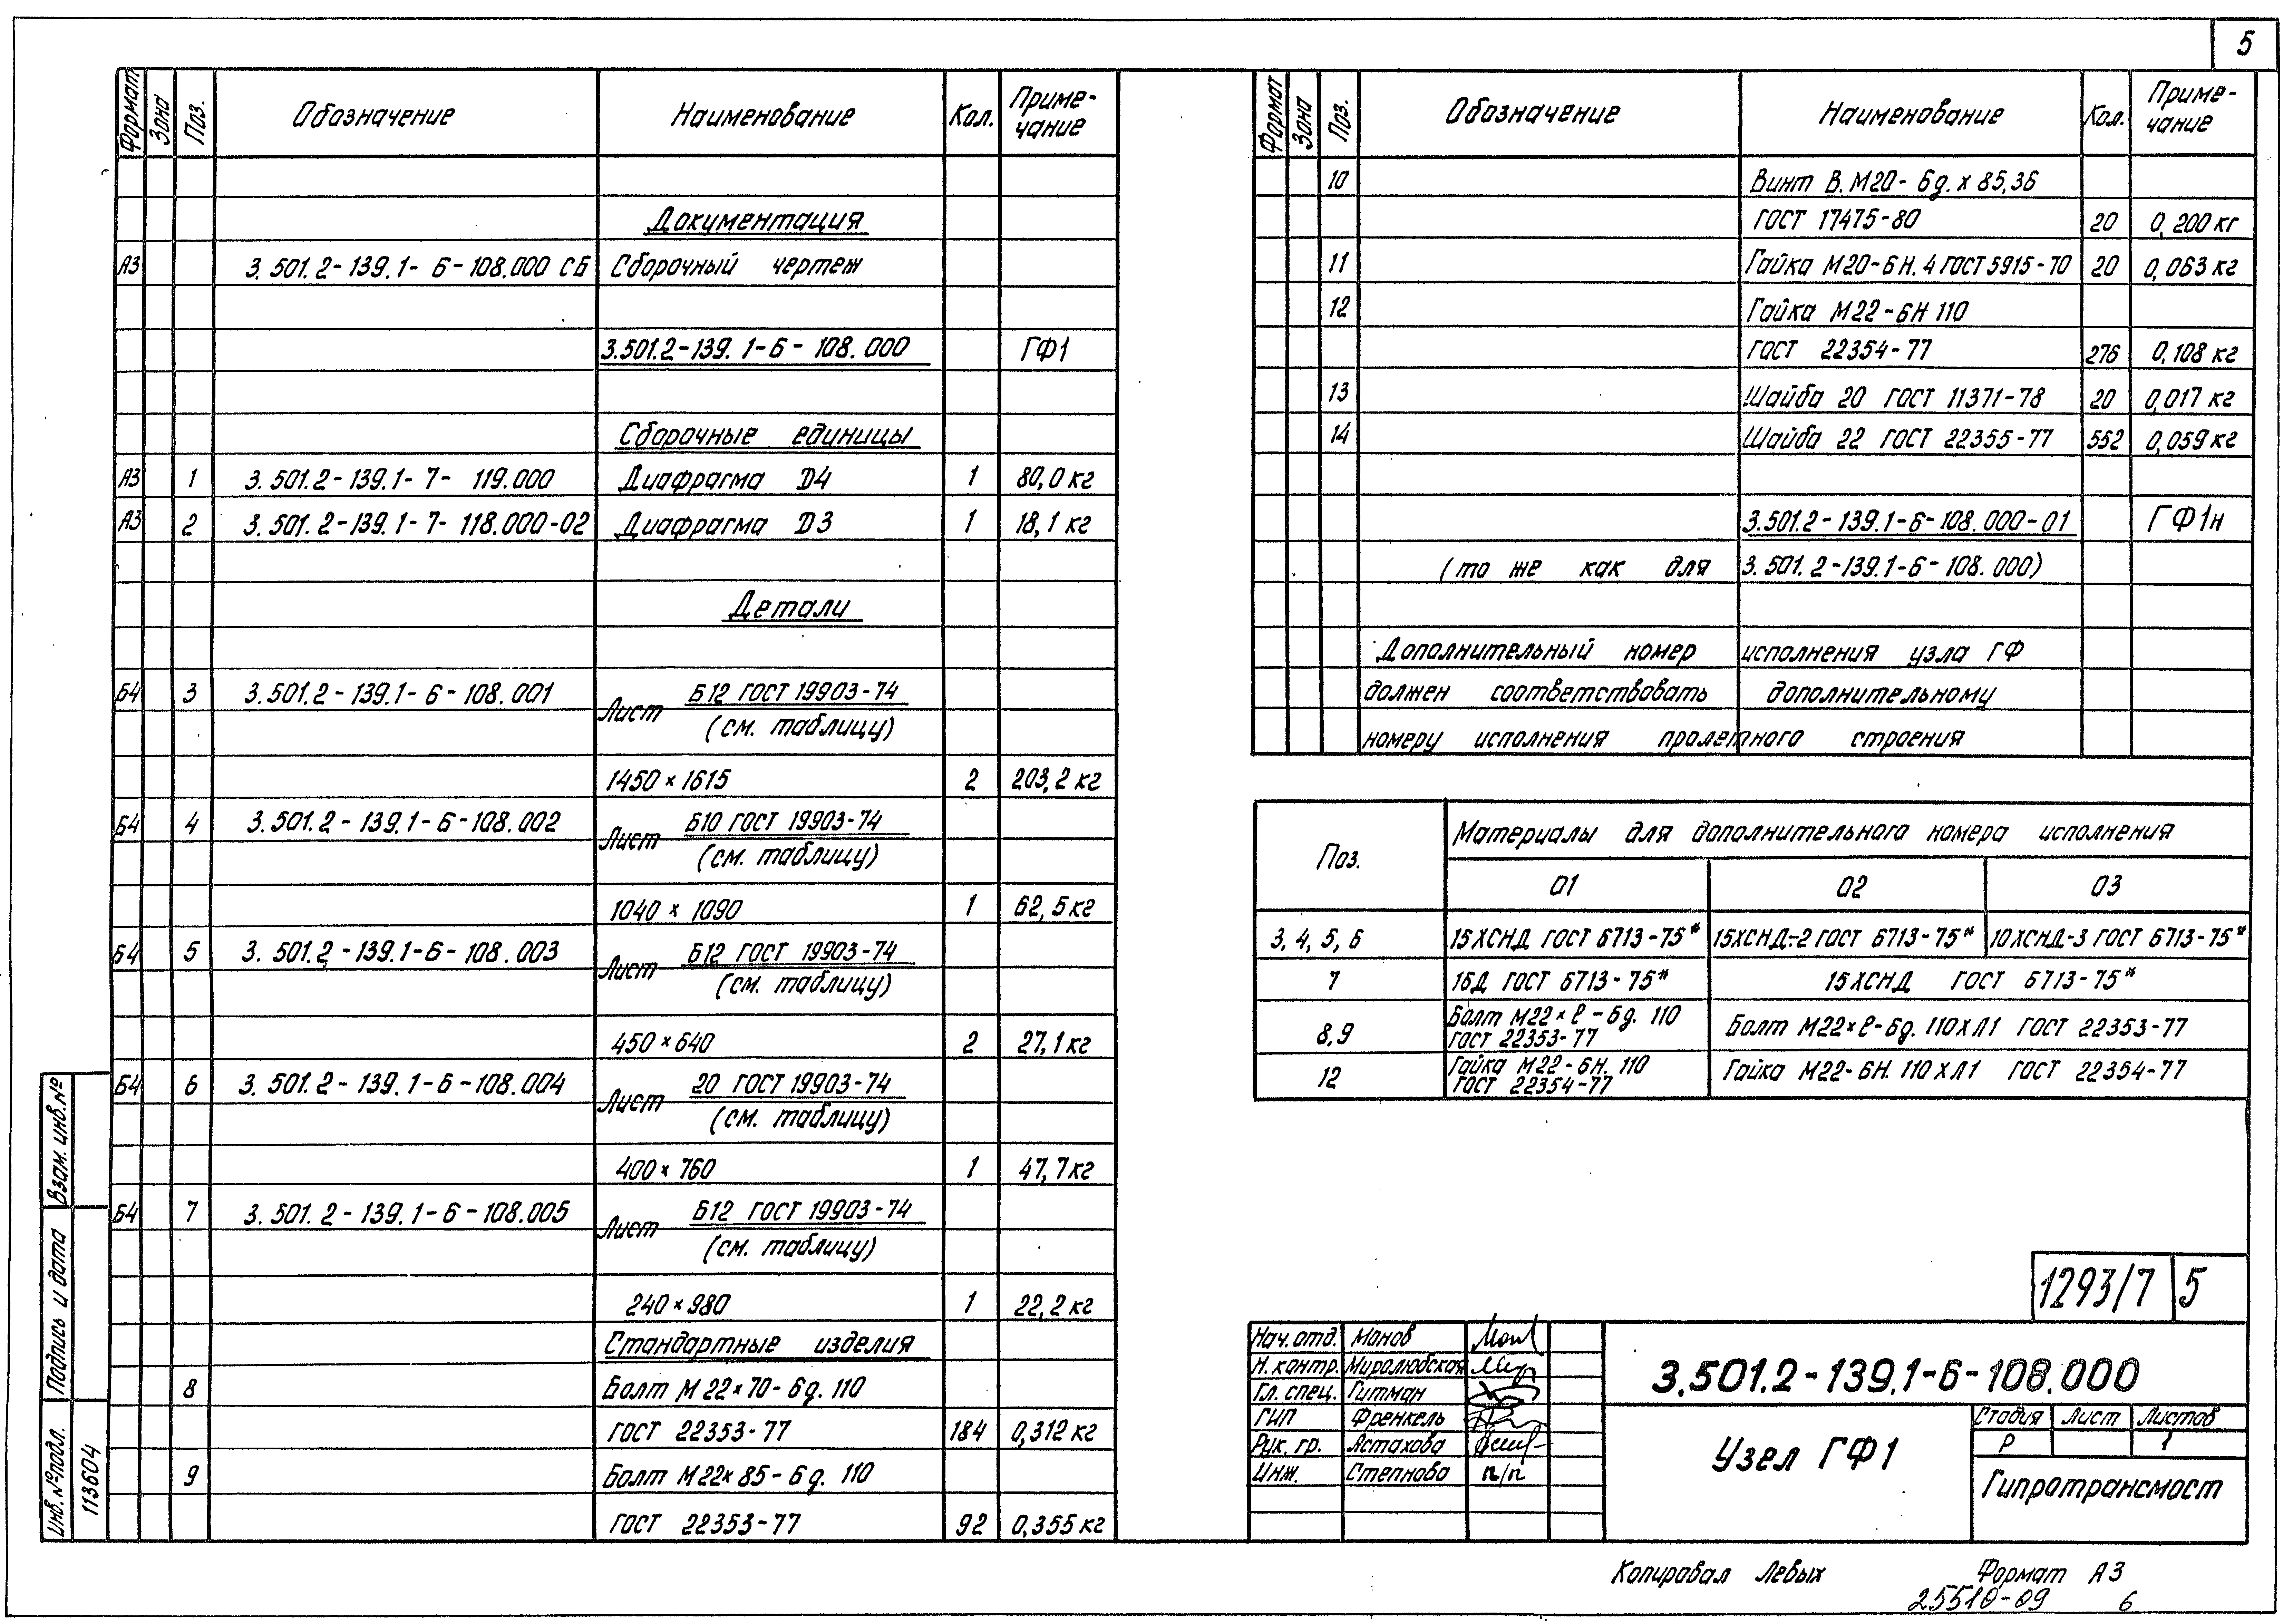 5
Формат Зона Поз. Обозначение Наименование Кол. Приме-
чание
Документация
А3 3.501.2-139.1-6-108.000 СБ Сборочный чертеж
3.501.2-139.1-6-108.000 ГФ1
Сборочные единицы
А3 1 3.501.2-139.1-7-119.000 Диафрагма D4 1 80,0 кг
А3 2 3.501.2-139.1-7-118.000-02 Диафрагма D3 1 18,1 кг
Детали
Б4 3 3.501.2-139.1-6-108.001 Лист Б12 ГОСТ 19903-74
(см. таблицу)
1450×1615 2 203,2 кг
Б4 4 3.501.2-139.1-6-108.002 Лист Б10 ГОСТ 19903-74
(см. таблицу)
1040×1090 1 62,5 кг
Б4 5 3.501.2-139.1-6-108.003 Лист Б12 ГОСТ 19903-74
(см. таблицу)
450×640 2 27,1 кг
Б4 6 3.501.2-139.1-6-108.004 Лист 20 ГОСТ 19903-74
(см. таблицу)
400×760 1 47,7 кг
Б4 7 3.501.2-139.1-6-108.005 Лист Б12 ГОСТ 19903-74
(см. таблицу)
240×980 1 22,2 кг
Стандартные изделия
8 Болт М22×70-6g. 110
ГОСТ 22353-77 184 0,312 кг
9 Болт М22×85-6g. 110
ГОСТ 22353-77 92 0,355 кг
Формат Зона Поз. Обозначение Наименование Кол. Приме-
чание
10 Винт В.М20-6g.×85,36
ГОСТ 17475-80 20 0,200 кг
11 Гайка М20-6Н.4 ГОСТ 5915-70 20 0,063 кг
12 Гайка М22-6Н 110
ГОСТ 22354-77 276 0,108 кг
13 Шайба 20 ГОСТ 11371-78 20 0,017 кг
14 Шайба 22 ГОСТ 22355-77 552 0,059 кг
3.501.2-139.1-6-108.000-01 ГФ1н
(то же как для 3.501.2-139.1-6-108.000)
Дополнительный номер исполнения узла ГФ
должен соответствовать дополнительному
номеру исполнения пролетного строения
Поз. Материалы для дополнительного номера исполнения
01 02 03
3, 4, 5, 6 15ХСНД ГОСТ 6713-75* 15ХСНД-2 ГОСТ 6713-75* 10ХСНД-3 ГОСТ 6713-75*
7 16Д ГОСТ 6713-75* 15ХСНД ГОСТ 6713-75*
8,9 Болт М22×ℓ-6g. 110
ГОСТ 22353-77 Болт М22×ℓ-6g. 110ХЛ1 ГОСТ 22353-77
12 Гайка М22-6Н. 110
ГОСТ 22354-77 Гайка М22-6Н. 110ХЛ1 ГОСТ 22354-77
1293/7 5
Нач. отд. Монов
Н. контр. Миролюбская
Гл. спец. Гитман
ГИП Френкель
Рук. гр. Астахова
Инж. Степнова п/п
3.501.2-139.1-6-108.000
Узел ГФ1
Стадия Лист Листов
Р 1
Гипротрансмост
Взам. инв.№
Подпись и дата
Инв.№ подл. 113604
Копировал Левых Формат А3
25510-09 6